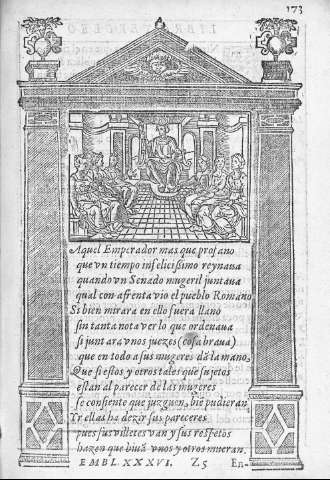 173
Aquel Emperador mas que profano
que vn tiempo infelicissimo reynaua
quando vn Senado mugeril juntaua
qual con afrenta vio el pueblo Romano
Si bien mirara en ello fuera llano
sin tanta nota ver lo que ordenaua
si juntara vnos juezes (cosa braua)
que en todo a sus mugeres dã la mano.
Que si estos y otros tales que sujetos
estan al parecer de las mugeres
se consiente que juzguen, biẽ pudieran
Yr ellas ha dezir sus pareceres
pues sus villetes van y sus respetos
hazen que biuã vnos y otros mueran.
EMBL. XXXVI. Z5 En-